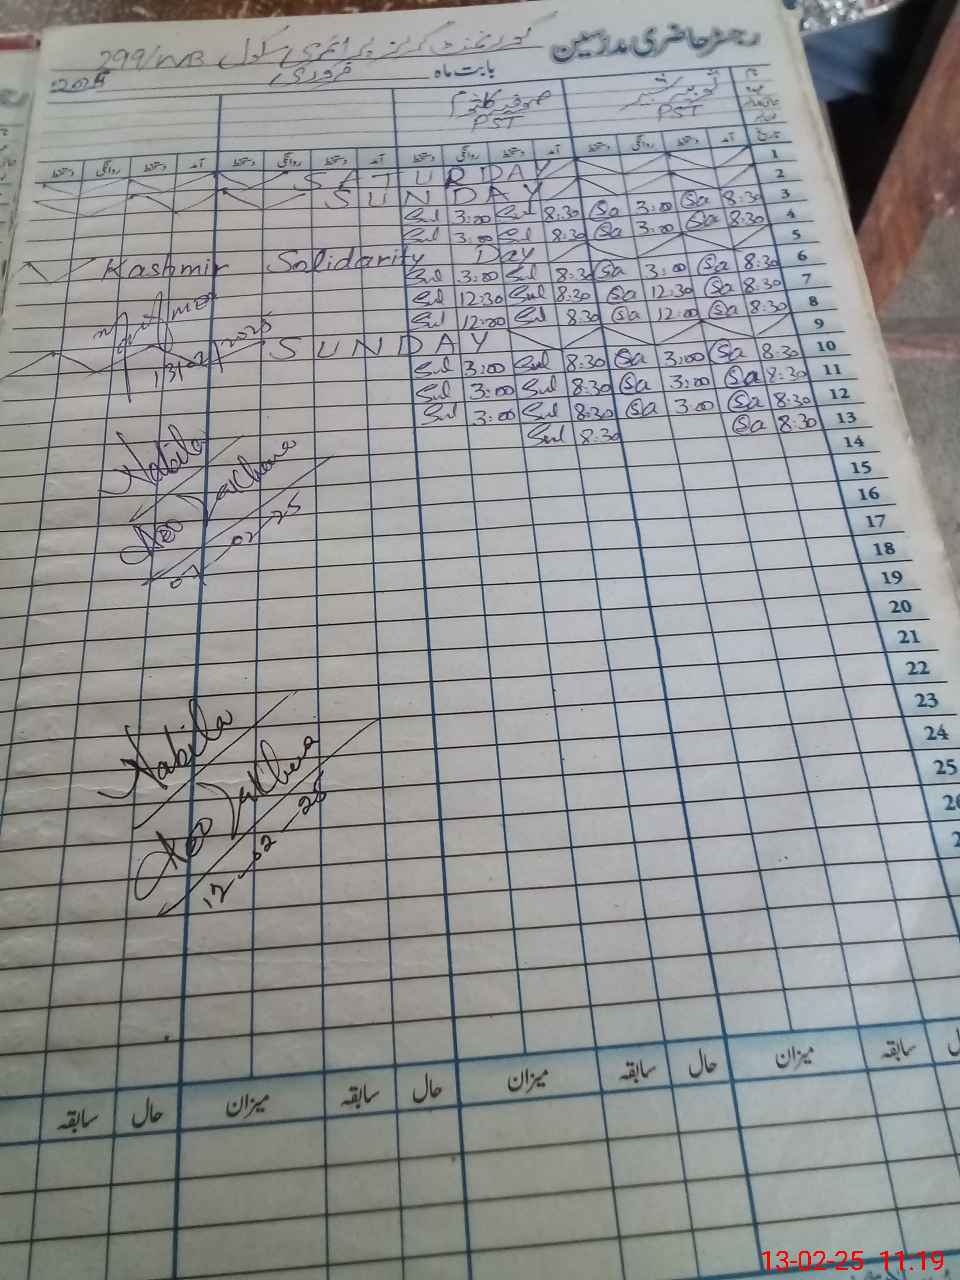 رجسٹر حاضری مدرسین گورنمنٹ گرلز پرائمری سکول 299/WB
بابت ماہ فروری 2025
PST PST
1 SATURDAY
2 SUNDAY
3 8:30 Sa 3:00 Sa 8:30 Sul 3:00 Sul
4 8:30 Sa 3:00 Sa 8:30 Sul 3:00 Sul
5 Kashmir Solidarity Day
6 8:30 Sa 3:00 Sa 8:30 Sul 3:00 Sul
7 8:30 Sa 12:30 Sa 8:30 Sul 12:30 Sul
8 8:30 Sa 12:00 Sa 8:30 Sul 12:00 Sul
9 SUNDAY
10 8:30 Sa 3:00 Sa 8:30 Sul 3:00 Sul
11 8:30 Sa 3:00 Sa 8:30 Sul 3:00 Sul
12 8:30 Sa 3:00 Sa 8:30 Sul 3:00 Sul
13 8:30 Sa 8:30 Sul
13/02/2025
14
15
16
17
18
19
20
21
22
23
24
25
Nabila
07-02-25
Nabila
12-02-25
سابقہ میزان حال سابقہ میزان حال سابقہ میزان حال سابقہ
13-02-25 11:19